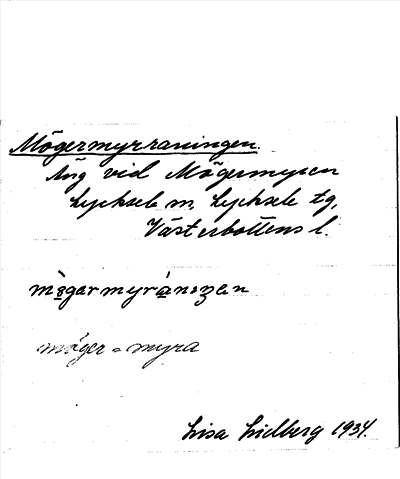 Mögermyrraningen.
Äng vid Mögermyren
Lycksele m, Lycksele tg,
Västerbottens l.
möger = myra
Lisa Lidberg 1934.